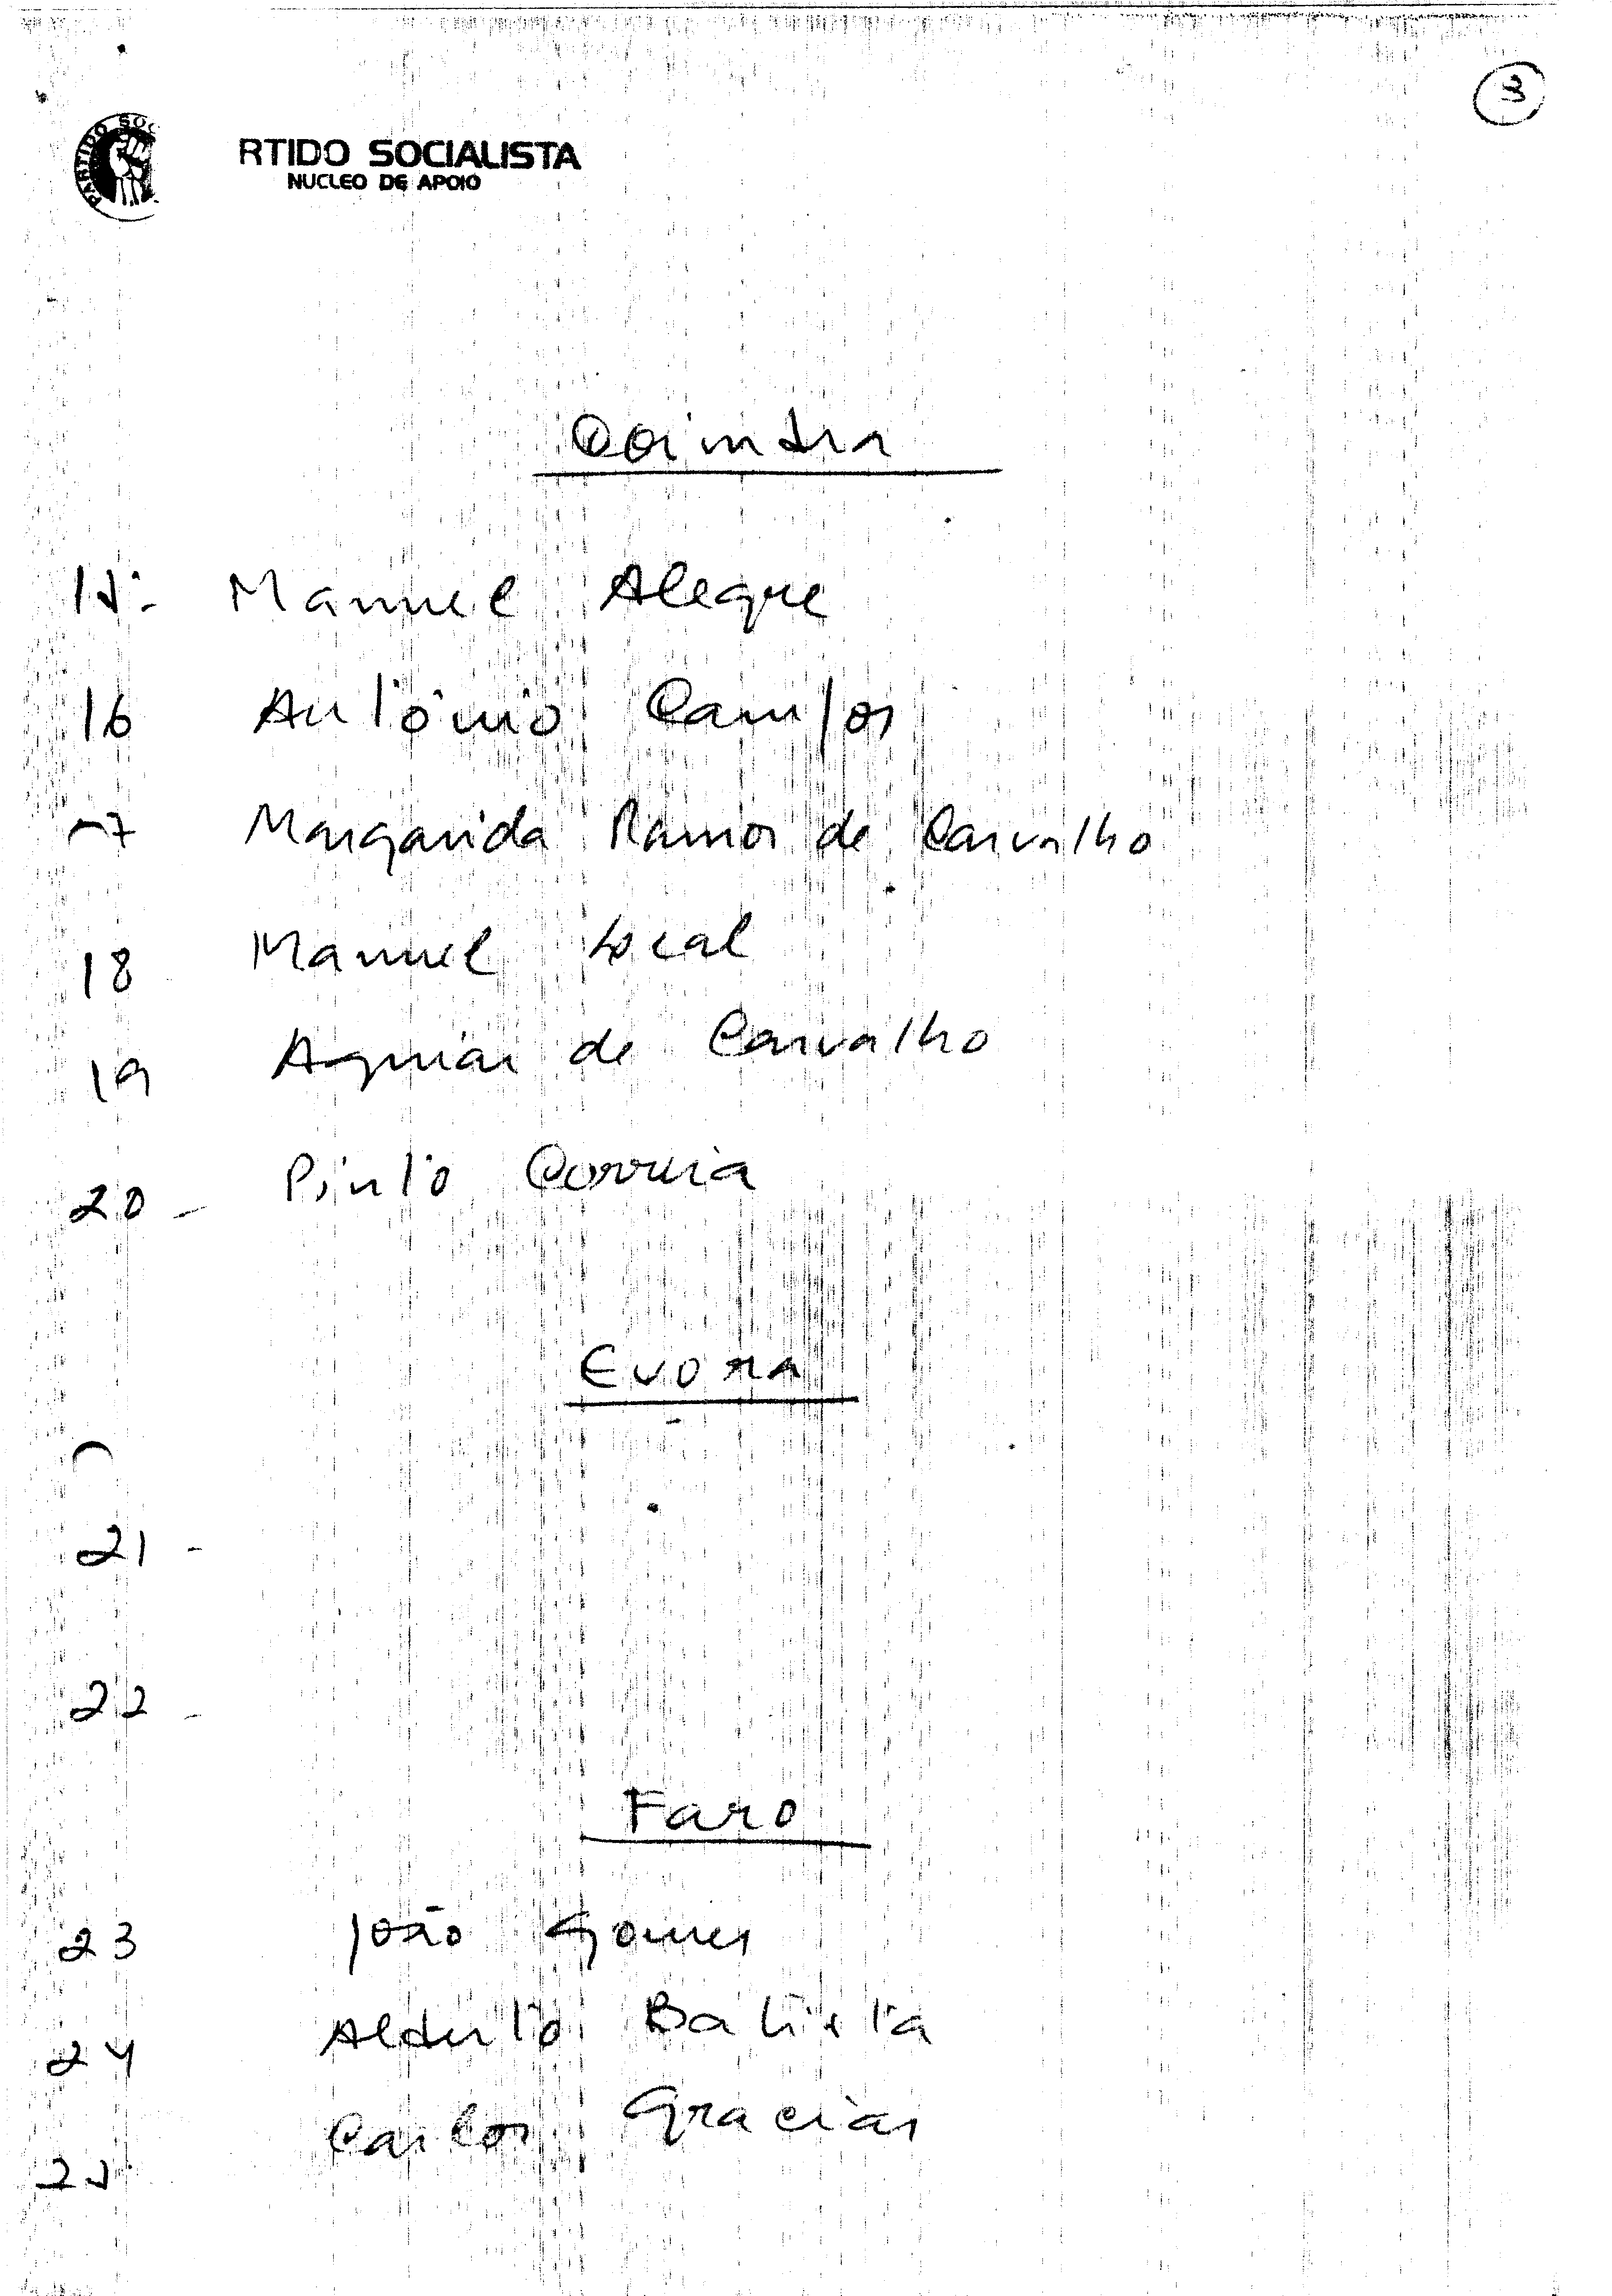 3
PARTIDO SOC
RTIDO SOCIALISTA
NUCLEO DE APOIO
Coimbra
15- Manuel Alegre
16 António Campos
17 Margarida Ramos de Carvalho
18 Manuel
19 Aguiar de Carvalho
20 - Pinto Correia
Evora
21 -
22 -
Faro
23 João Gomes
24 Batista
25 Carlos Gracias